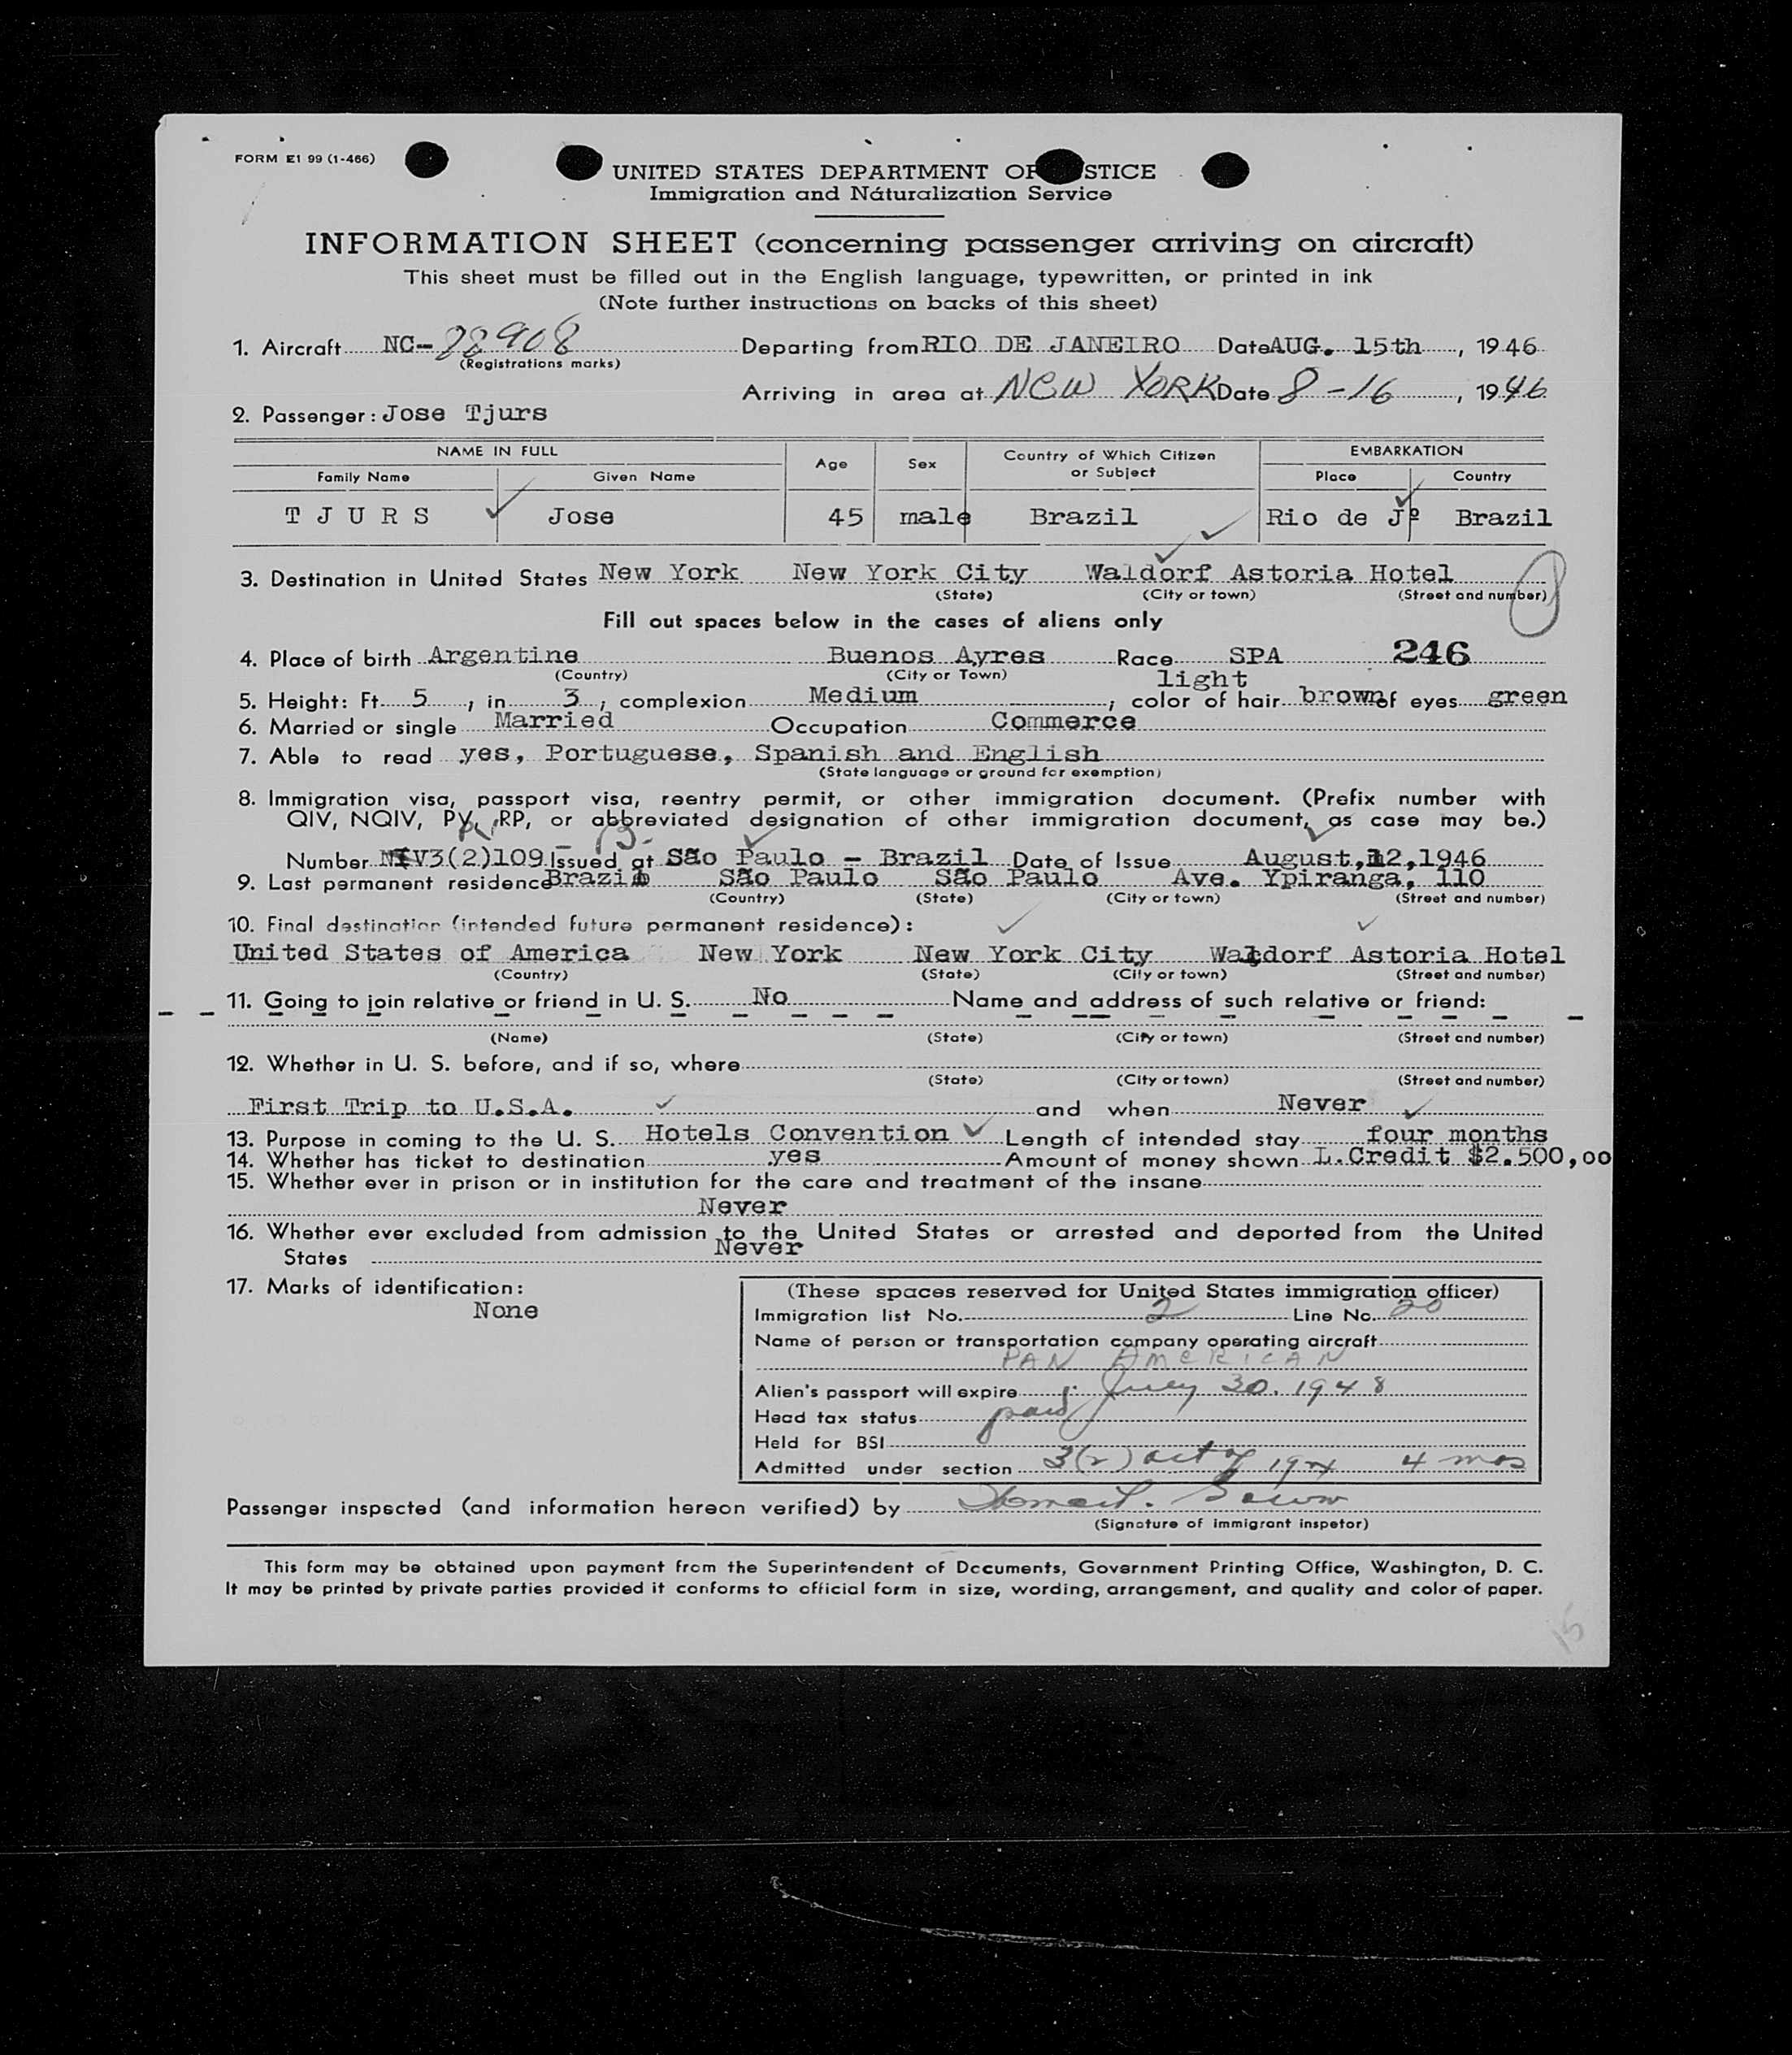 FORM E1 99 (1-466)
UNITED STATES DEPARTMENT OF STICE
Immigration and Náturalization Service
INFORMATION SHEET (concerning passenger arriving on aircraft)
This sheet must be filled out in the English language, typewritten, or printed in ink
(Note further instructions on backs of this sheet)
1. Aircraft NC-88908 Departing from RIO DE JANEIRO Date AUG. 15th, 1946
(Registrations marks)
Arriving in area at NEW YORK Date 8-16, 1946
2. Passenger: Jose Tjurs
NAME IN FULL Age Sex Country of Which Citizen or Subject EMBARKATION
Family Name Given Name Place Country
T J U R S Jose 45 male Brazil Rio de Jº Brazil
3. Destination in United States New York New York City Waldorf Astoria Hotel
(State) (City or town) (Street and number)
Fill out spaces below in the cases of aliens only
4. Place of birth Argentine Buenos Ayres Race SPA 246
(Country) (City or Town) light
5. Height: Ft. 5, in 3, complexion Medium; color of hair brown of eyes green
6. Married or single Married Occupation Commerce
7. Able to read yes, Portuguese, Spanish and English
(State language or ground for exemption)
8. Immigration visa, passport visa, reentry permit, or other immigration document. (Prefix number with
QIV, NQIV, PV, RP, or abbreviated designation of other immigration document, as case may be.)
Number V3(2)109 Issued at São Paulo - Brazil Date of Issue August, 12, 1946
9. Last permanent residence Brazil São Paulo São Paulo Ave. Ypiranga, 110
(Country) (State) (City or town) (Street and number)
10. Final destination (intended future permanent residence):
United States of America New York New York City Waldorf Astoria Hotel
(Country) (State) (City or town) (Street and number)
11. Going to join relative or friend in U. S. No Name and address of such relative or friend:
(Name) (State) (City or town) (Street and number)
12. Whether in U. S. before, and if so, where
(State) (City or town) (Street and number)
First Trip to U.S.A. and when Never
13. Purpose in coming to the U. S. Hotels Convention Length of intended stay four months
14. Whether has ticket to destination yes Amount of money shown L.Credit $2.500,00
15. Whether ever in prison or in institution for the care and treatment of the insane
Never
16. Whether ever excluded from admission to the United States or arrested and deported from the United
States Never
17. Marks of identification:
None
(These spaces reserved for United States immigration officer)
Immigration list No. 2 Line No. 20
Name of person or transportation company operating aircraft
PAN AMERICAN
Alien's passport will expire July 30. 1948
Head tax status paid
Held for BSI
Admitted under section 3(2) act of 1924 4 mos
Passenger inspected (and information hereon verified) by
(Signature of immigrant inspetor)
This form may be obtained upon payment from the Superintendent of Documents, Government Printing Office, Washington, D. C.
It may be printed by private parties provided it conforms to official form in size, wording, arrangement, and quality and color of paper.
15